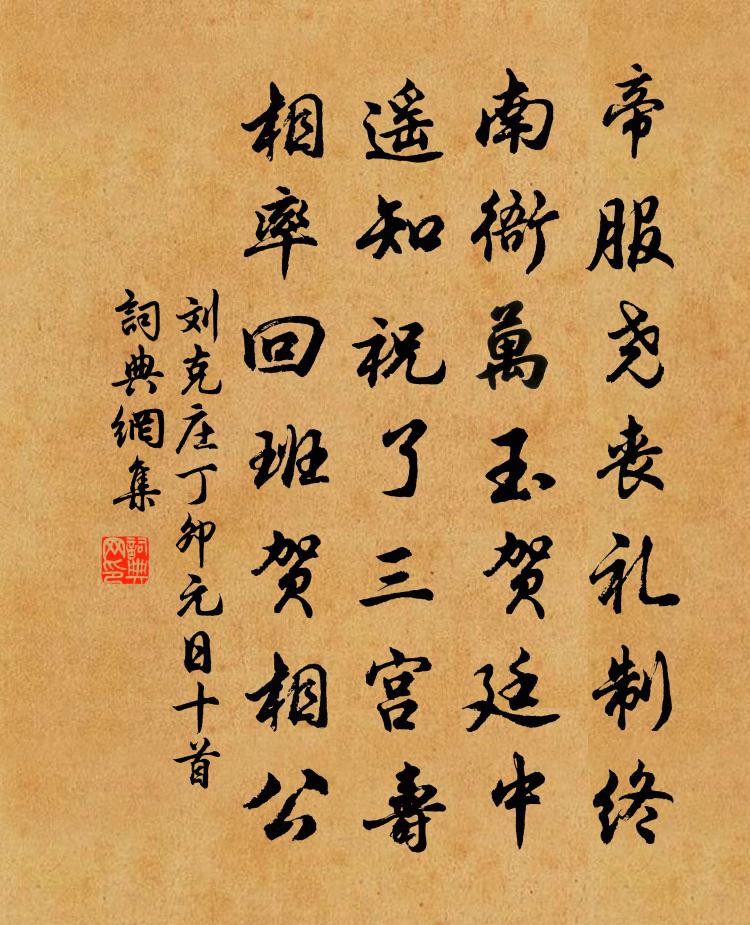 帝服尧丧礼制终
南衙萬玉贺廷中
遥知祝了三宫壽
相率回班贺相公
刘克庄丁卯元日十首
詞典網集
詞典網印